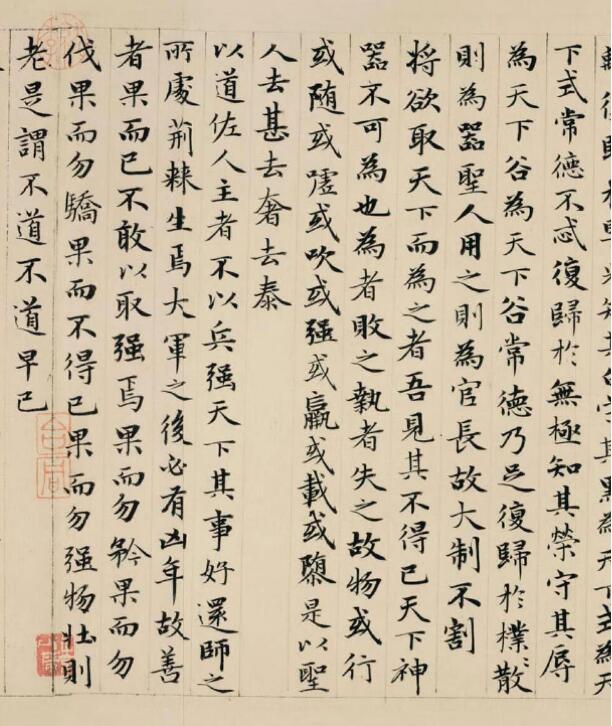 知其白守其黑為天下式為天
下式常德不忒復歸於無極知其榮守其辱
為天下谷為天下谷常德乃足復歸於樸〻散
則為噐聖人用之則為官長故大制不割
將欲取天下而為之者吾見其不得已天下神
噐不可為也為者敗之執者失之故物或行
或随或噓或吹或强或羸或載或隳是以聖
人去甚去奢去泰
以道佐人主者不以兵强天下其事好還師之
所處荊棘生焉大軍之後必有凶年故善
者果而已不敢以取强焉果而勿矜果而勿
伐果而勿驕果而不得已果而勿强物壯則
老是謂不道不道早已